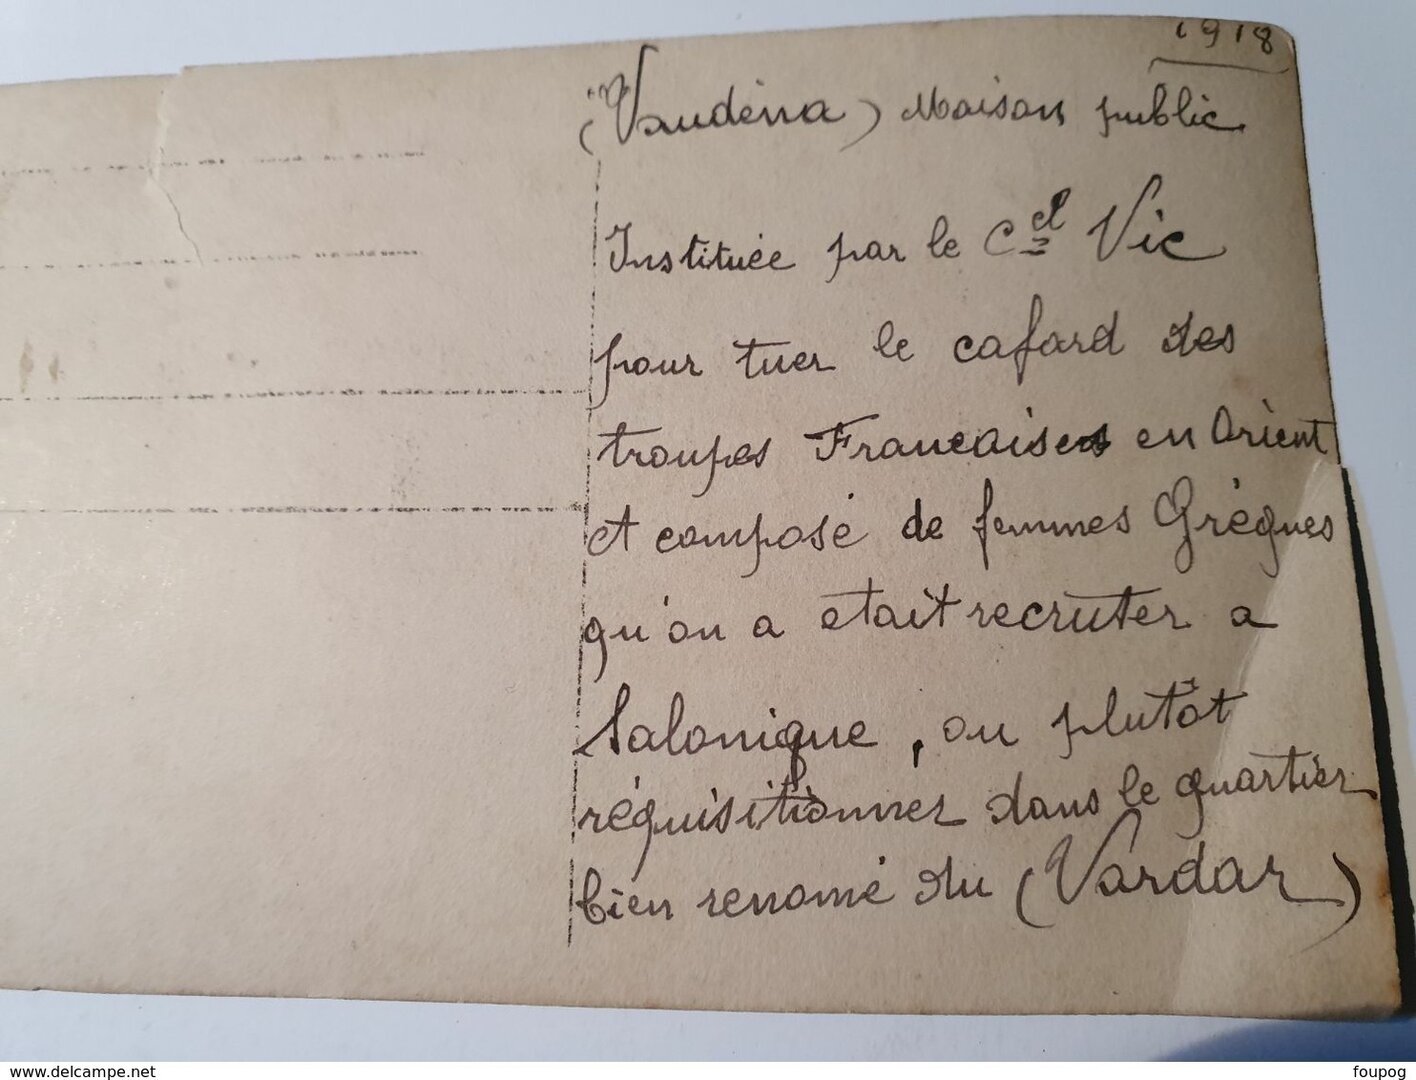 1918
(Vaudéna) Maison public
Instituée par le Cel Vic
pour tuer le cafard des
troupes Francaises en Orient
et composé de femmes Grègues
qu'on a etait recruter a
Salonique, ou plutôt
réquisitionner dans le quartier
bien renomé du (Vardar)
foupog